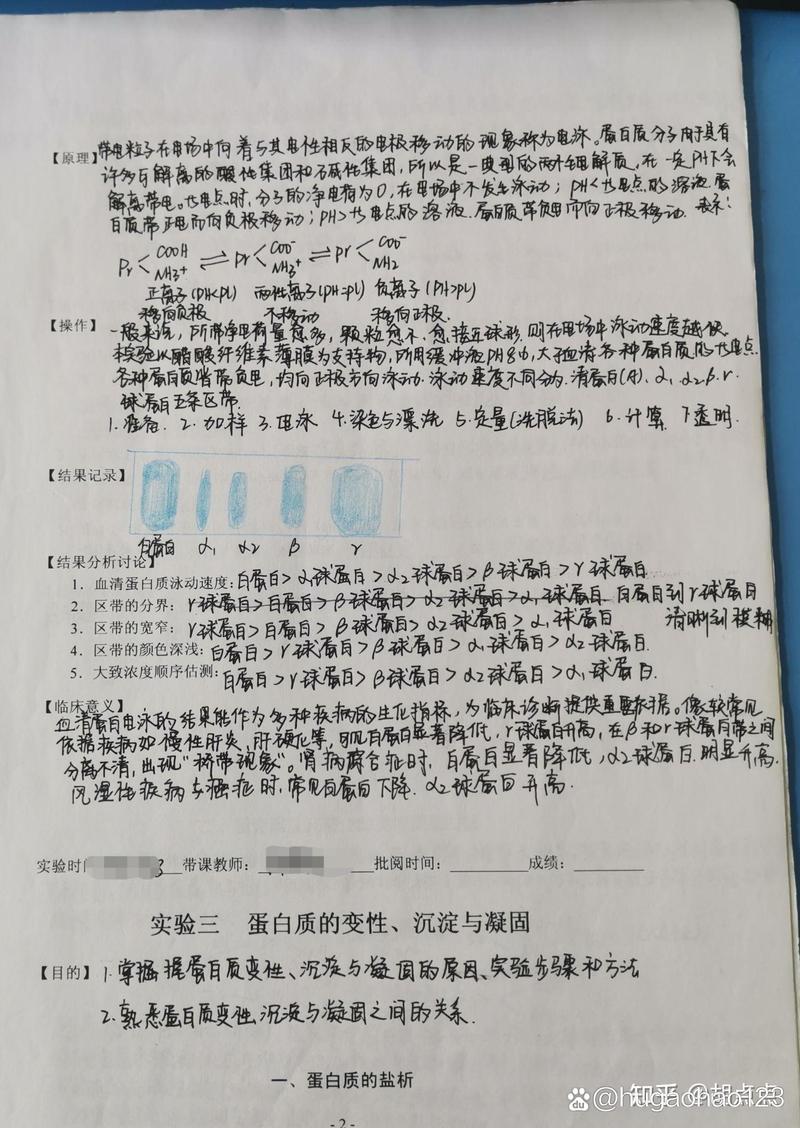 【原理】带电粒子在电场中向着与其电性相反的电极移动的现象称为电泳。蛋白质分子由于具有
许多可解离的酸性集团和碱性集团,所以是一典型的两性电解质,在一定PH下会
解离带电。等电点时,分子的净电荷为0,在电场中不发生泳动;PH<等电点的溶液.蛋
白质带正电而向负极移动;PH>等电点的溶液.蛋白质带负电而向正极移动.表示:
Pr COOH NH3+ ⇌ Pr COO- NH3+ ⇌ Pr COO- NH2
正离子(PH<PL) 两性离子(PH=PL) 负离子(PH>PL)
移向负极 不移动 移向正极.
【操作】一般来说,所带净电荷量愈多,颗粒愈小.愈接近球形.则在电场中泳动速度越快.
本实验以醋酸纤维素薄膜为支持物,所用缓冲液PH8.6,大于血清各种蛋白质的等电点.
各种蛋白质皆带负电,均向正极方向泳动.泳动速度不同分为.清蛋白(A).α1.α2.β.γ.
球蛋白五条区带.
1.准备. 2.加样 3.电泳 4.染色与漂洗 5.定量(洗脱法) 6.计算. 7透明.
【结果记录】
白蛋白 α1 α2 β γ
【结果分析讨论】
1.血清蛋白质泳动速度:白蛋白>α1球蛋白>α2球蛋白>β球蛋白>γ球蛋白.
2.区带的分界:γ球蛋白>白蛋白>β球蛋白>α2球蛋白>α1球蛋白. 白蛋白到γ球蛋白
清晰到模糊
3.区带的宽窄:γ球蛋白>白蛋白>β球蛋白>α2球蛋白>α1球蛋白
4.区带的颜色深浅:白蛋白>γ球蛋白>β球蛋白>α1球蛋白>α2球蛋白.
5.大致浓度顺序估测:白蛋白>γ球蛋白>β球蛋白>α2球蛋白>α1球蛋白.
【临床意义】
血清蛋白电泳的结果能作为多种疾病的生化指标,为临床诊断提供重要依据。像较常见
依据疾病如慢性肝炎、肝硬化等,可见白蛋白显著降低,γ球蛋白升高,在β和γ球蛋白带之间
分离不清,出现"桥带现象"。肾病综合征时,白蛋白显著降低,α2球蛋白.明显升高.
风湿性疾病与癌症时,常见白蛋白下降.α2球蛋白升高.
实验时 3 带课教师: 批阅时间: 成绩:
实验三 蛋白质的变性、沉淀与凝固
【目的】1.掌握握蛋白质变性、沉淀与凝固的原因、实验步骤和方法
2.熟悉蛋白质变性.沉淀与凝固之间的关系.
一、蛋白质的盐析
- 2 -
知乎 @胡点点
Bai du @hugaohao123